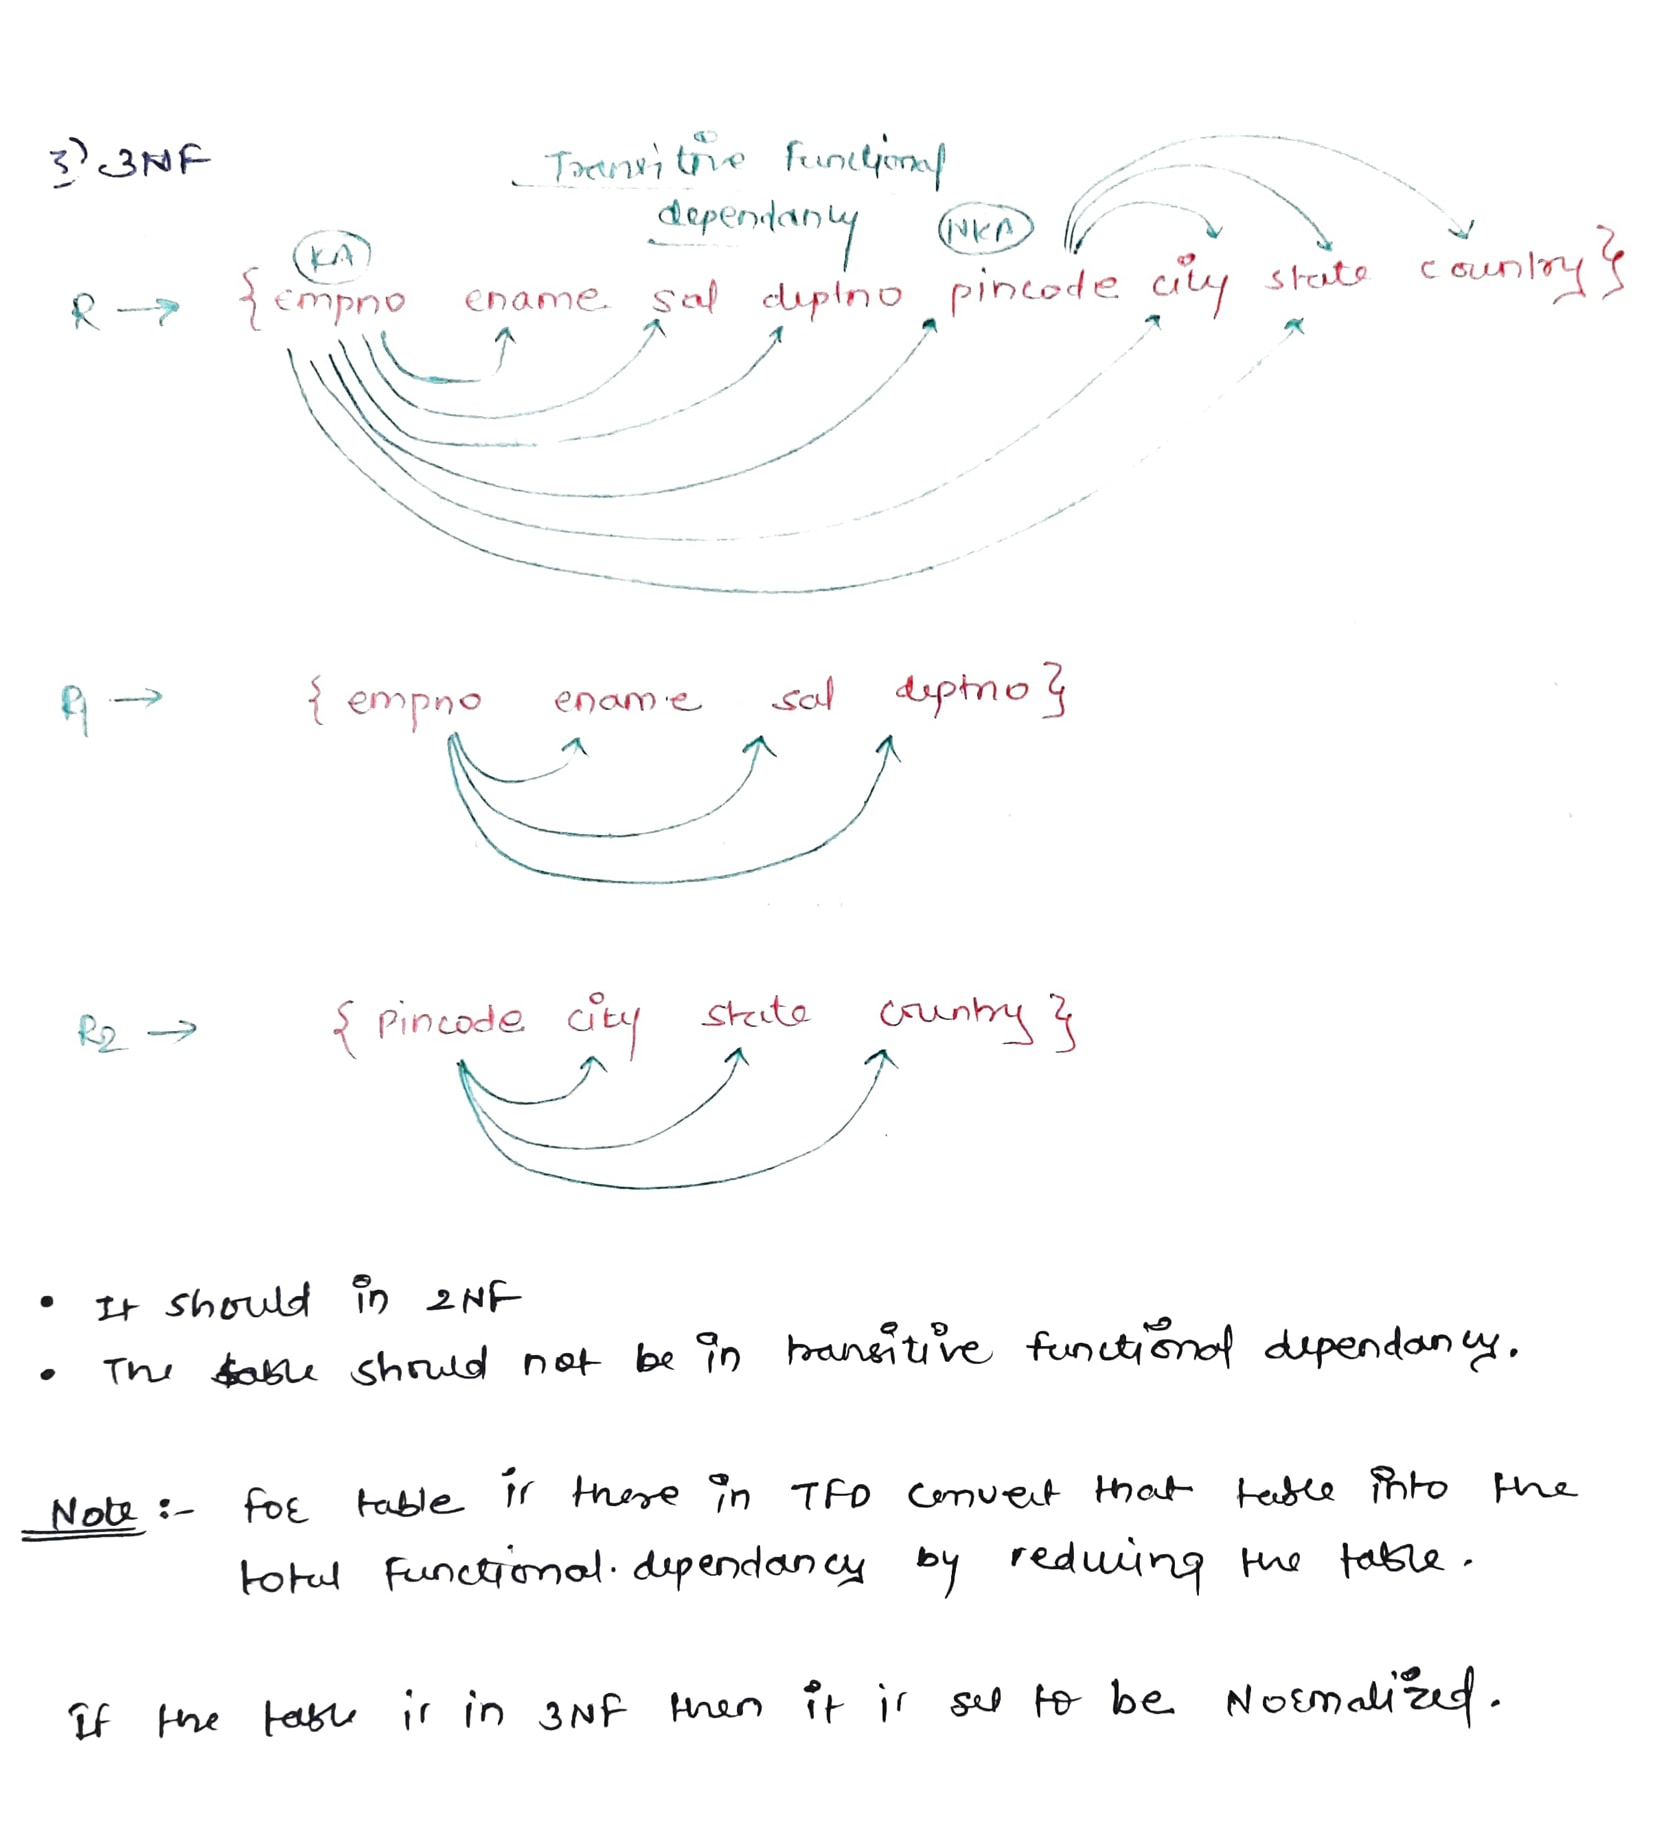 3) 3NF
Transitive Functional
dependancy
KA
NKA
R → { empno ename sal deptno pincode city state country }
R1 → { empno ename sal deptno }
R2 → { pincode city state country }
• It should in 2NF
• The table should not be in transitive functional dependancy.
Note :- For table is there in TFD convert that table into the
total Functional dependancy by reducing the table.
If the table is in 3NF then it is sed to be Normalized.